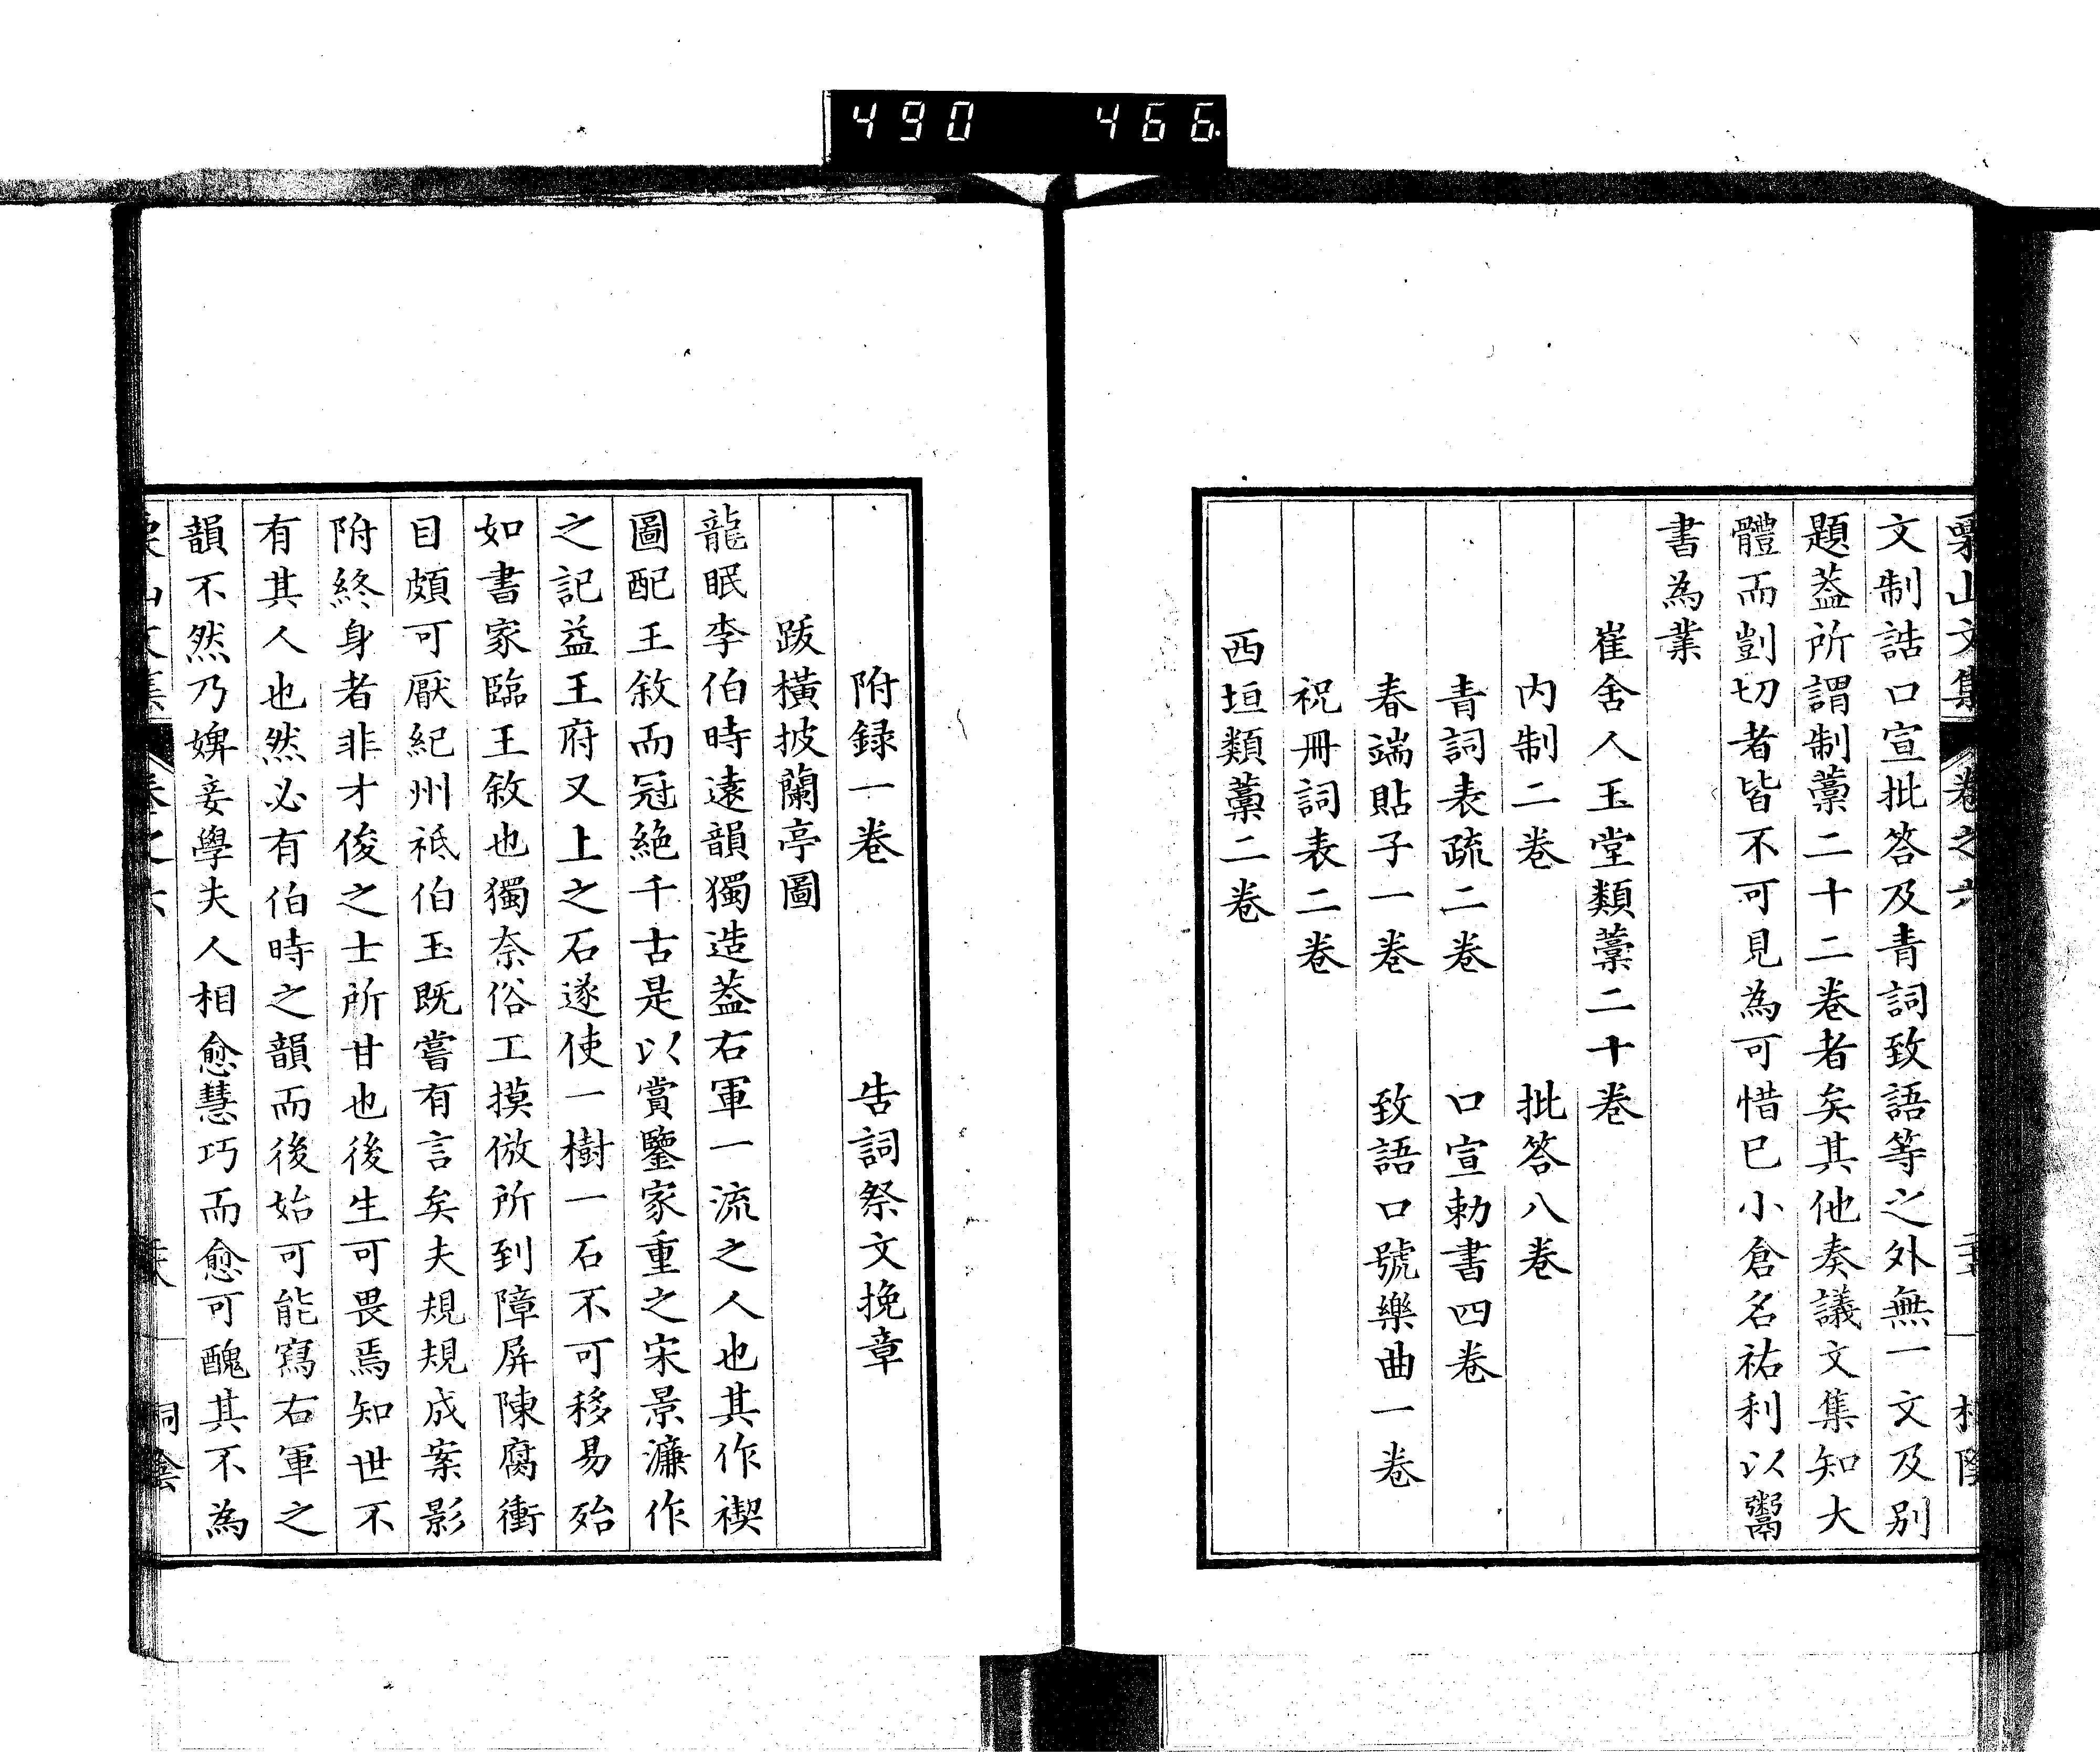 490 466
栗山文集 卷之六
文制誥口宣批答及青詞致語等之外無一文及別
題葢所謂制藁二十二卷者矣其他奏議文集知大
體而剴切者皆不可見為可惜已小倉名祐利以鬻
書為業
崔舍人玉堂類藁二十卷
内制二卷 批答八卷
青詞表疏二卷 口宣勅書四卷
春端貼子一卷 致語口號樂曲一卷
祝冊詞表二卷
西垣類藁二卷
附録一卷 告詞祭文挽章
跋橫披蘭亭圖
龍眠李伯時遠韻獨造葢右軍一流之人也其作禊
圖配王敘而冠絶千古是以賞鑒家重之宋景濂作
之記益王府又上之石遂使一樹一石不可移易殆
如書家臨王敘也獨奈俗工摸倣所到障屏陳腐衝
目頗可厭紀州祗伯玉既嘗有言矣夫規規成案影
附終身者非才俊之士所甘也後生可畏焉知世不
有其人也然必有伯時之韻而後始可能寫右軍之
韻不然乃婢妾學夫人相愈慧巧而愈可醜其不為